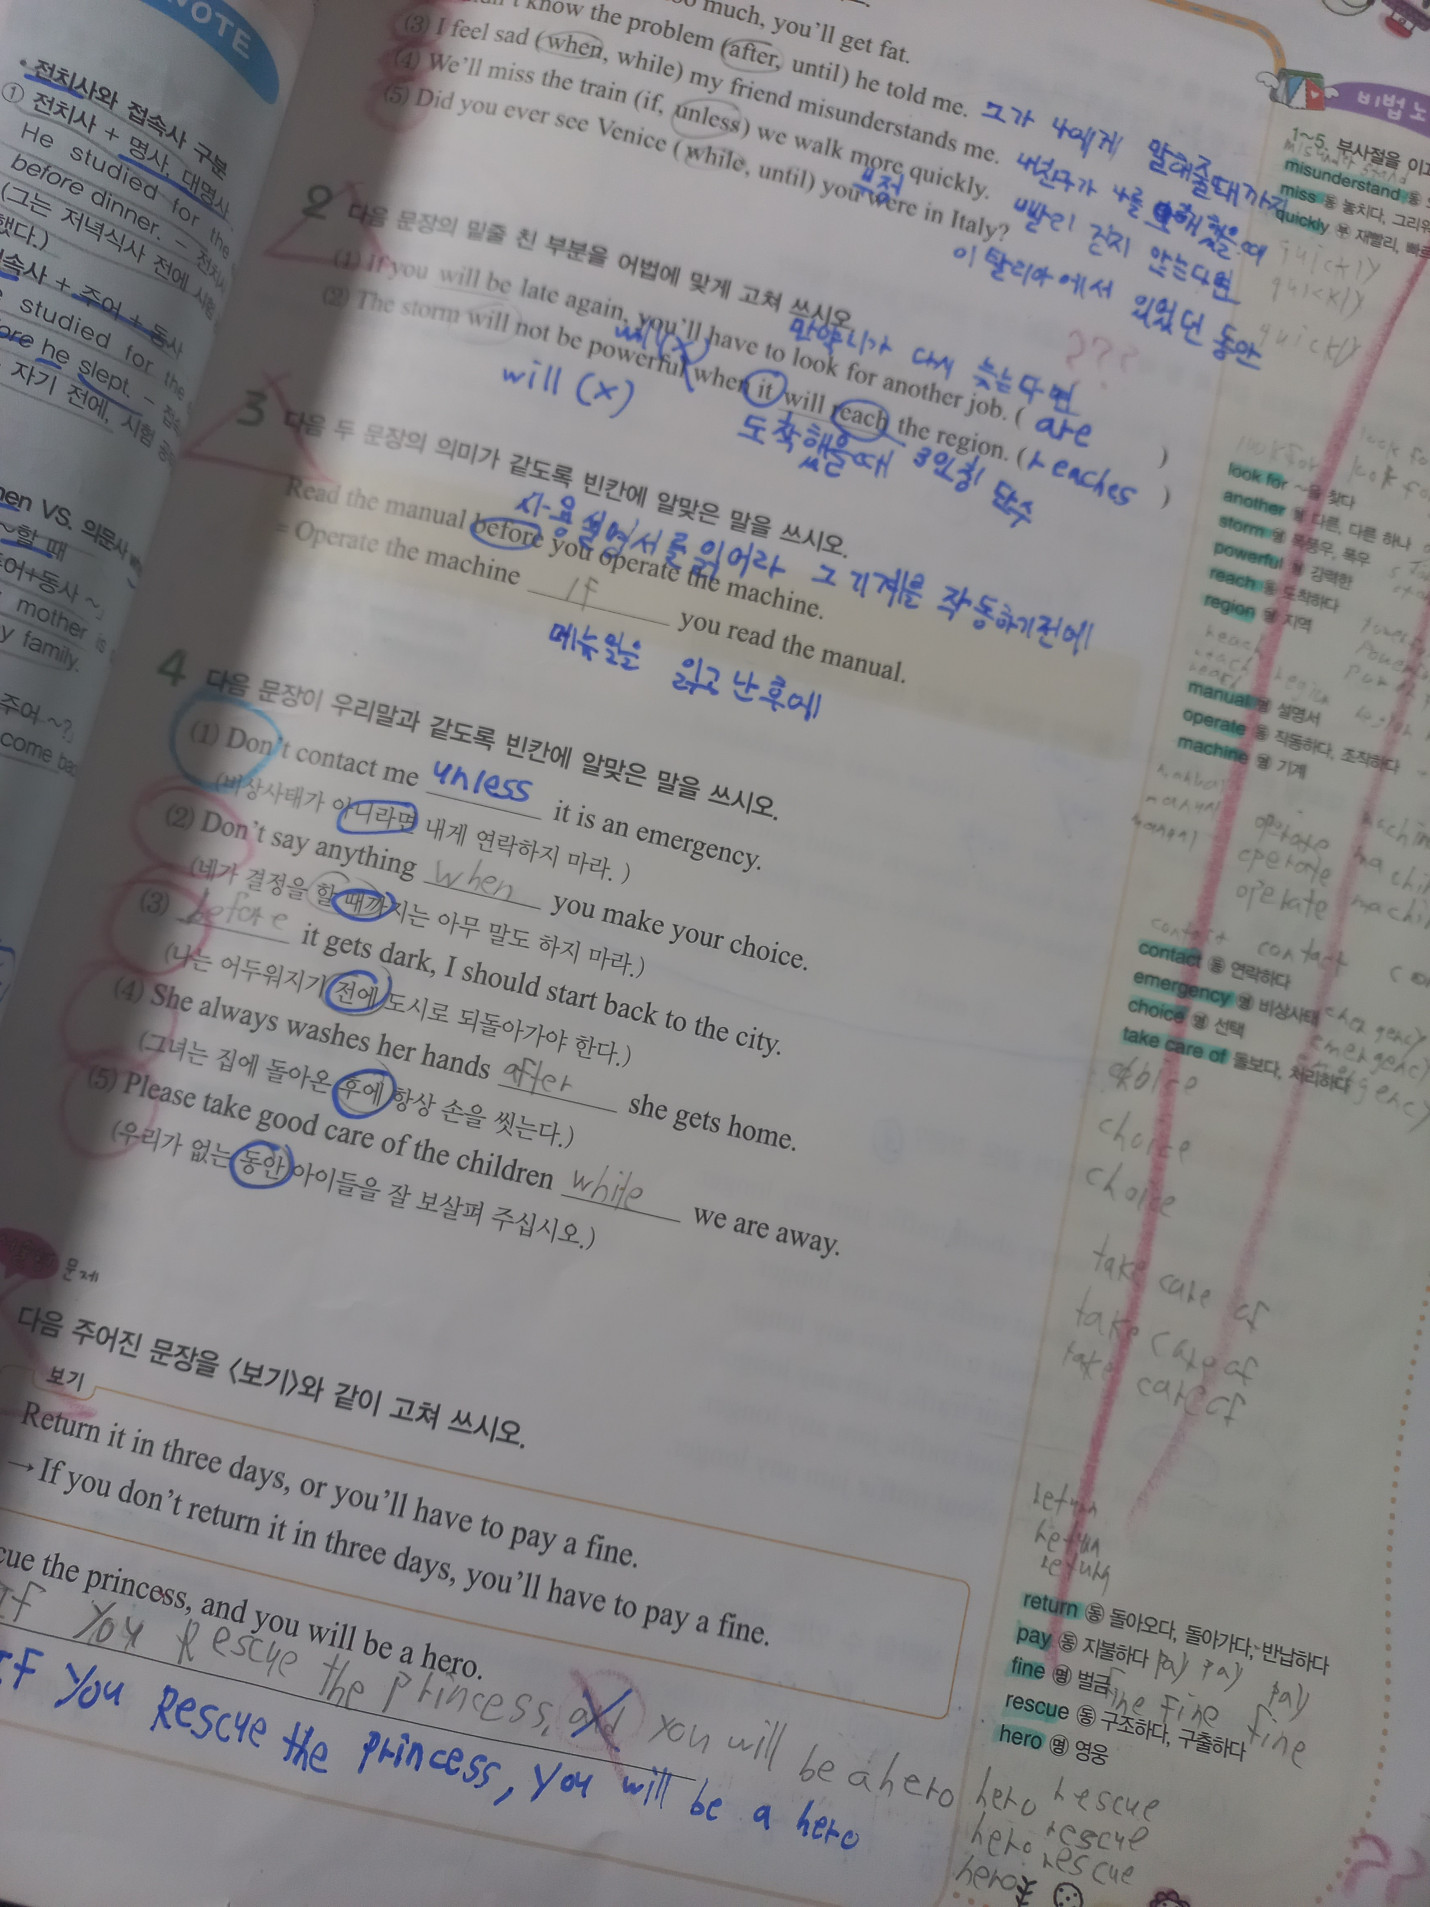 NOTE
• 전치사와 접속사 구분
① 전치사 + 명사, 대명사
He studied for the
before dinner. – 전치사
(그는 저녁식사 전에 시험
했다.)
속사 + 주어 + 동사
studied for the
ore he slept. –
자기 전에, 시험
en VS. 의문사
~할 때
어+동사 ~
mother is
y family.
주어 ~?
come
much, you'll get fat.
know the problem (after, until) he told me. 그가 나에게 말해줄때까지
(3) I feel sad (when, while) my friend misunderstands me. 내친구가 나를 오해했을때
(4) We'll miss the train (if, unless) we walk more quickly. 빨리 걷지 않는다면
부정
(5) Did you ever see Venice (while, until) you were in Italy? 이탈리아에서 있었던 동안
2 다음 문장의 밑줄 친 부분을 어법에 맞게 고쳐 쓰시오.
만약 니가 다시 늦는다면
???
(1) If you will be late again, you'll have to look for another job. ( are )
will(x)
(2) The storm will not be powerful when it will reach the region. ( reaches )
will (x)
도착했을때 3인칭 단수
3 다음 두 문장의 의미가 같도록 빈칸에 알맞은 말을 쓰시오.
사용설명서를 읽어라 그 기계를 작동하기전에
Read the manual before you operate the machine.
= Operate the machine if you read the manual.
메뉴얼을 읽고 난 후에
4 다음 문장이 우리말과 같도록 빈칸에 알맞은 말을 쓰시오.
(1) Don't contact me unless it is an emergency.
(비상사태가 아니라면 내게 연락하지 마라. )
(2) Don't say anything when you make your choice.
(네가 결정을 할 때까지는 아무 말도 하지 마라.)
(3) before it gets dark, I should start back to the city.
(나는 어두워지기 전에 도시로 되돌아가야 한다.)
(4) She always washes her hands after she gets home.
(그녀는 집에 돌아온 후에 항상 손을 씻는다.)
(5) Please take good care of the children while we are away.
(우리가 없는 동안 아이들을 잘 보살펴 주십시오.)
문제
다음 주어진 문장을 〈보기〉와 같이 고쳐 쓰시오.
보기
Return it in three days, or you'll have to pay a fine.
→ If you don't return it in three days, you'll have to pay a fine.
cue the princess, and you will be a hero.
If you Rescue the princess, and you will be a hero
If you Rescue the princess, you will be a hero
비법 노
1~5. 부사절을 이끄
misunderstand 동
miss 동 놓치다, 그리워
quickly 부 재빨리, 빠르
quickly
quickly
quickly
look for ~을 찾다
another 형 다른, 다른 하나
storm 명 폭풍우, 폭우
powerful 형 강력한
reach 동 도착하다
region 명 지역
manual 명 설명서
operate 동 작동하다, 조작하다
machine 명 기계
manual
manual
manual
operate machine
operate machin
operate machin
contact contact
contact 동 연락하다
emergency 명 비상사태
choice 명 선택
take care of 돌보다, 처리하다
emergency
choice
choice
choice
take care of
take care of
take care of
return
return
return
return 동 돌아오다, 돌아가다, 반납하다
pay 동 지불하다 pay pay pay
fine 명 벌금 fine fine fine
rescue 동 구조하다, 구출하다
hero 명 영웅
hero rescue
hero rescue
hero rescue